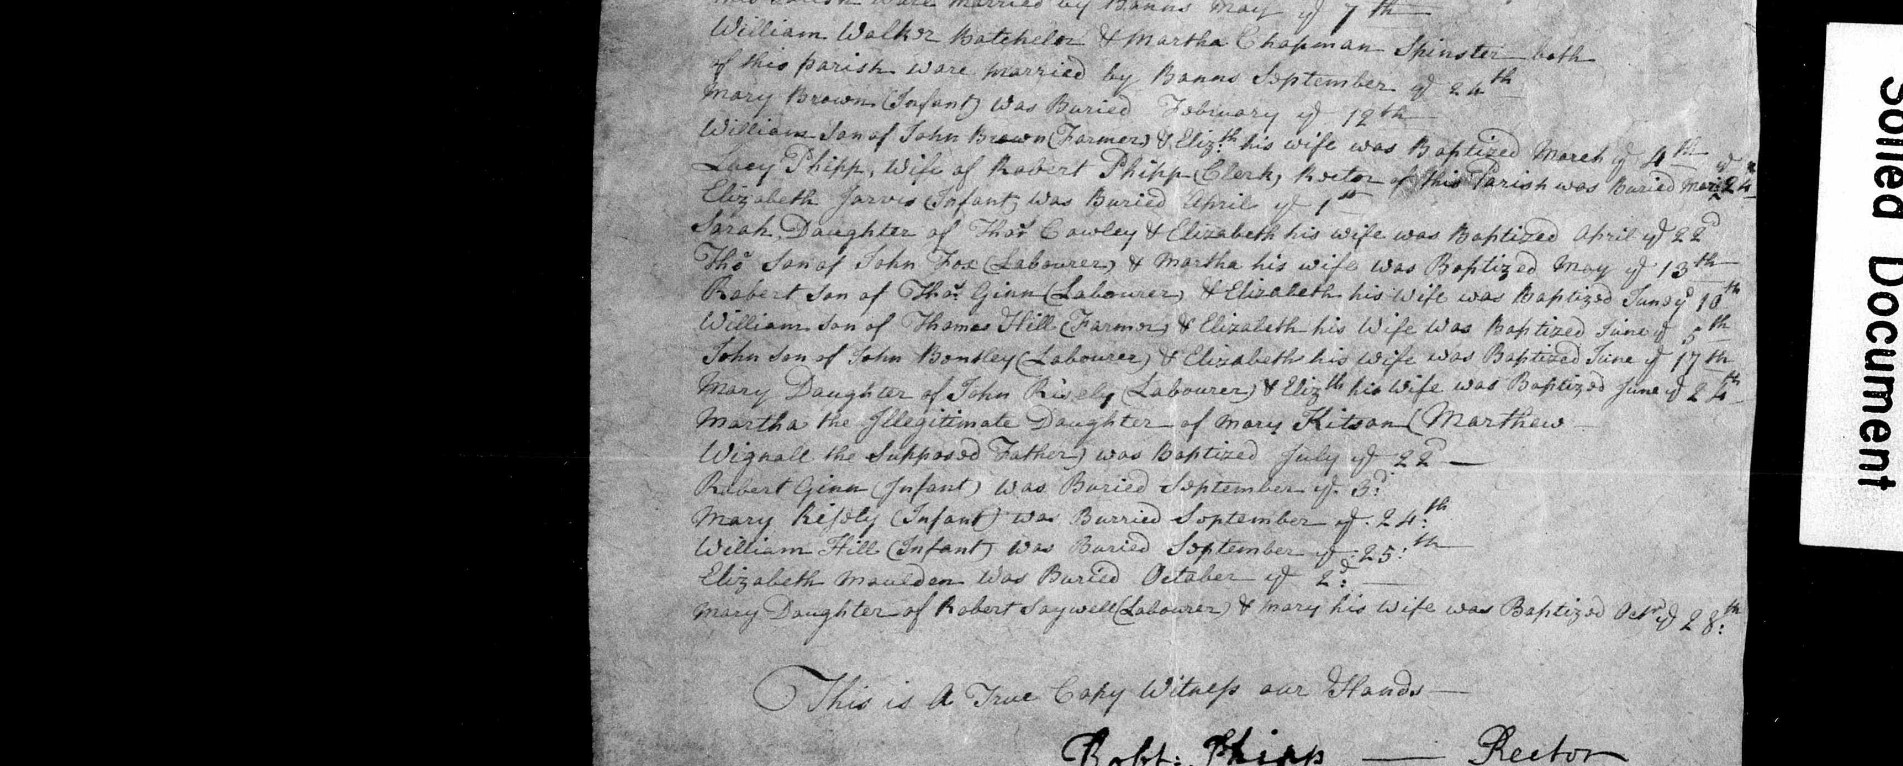 this Parish were Married by Banns May ye 7th
William Walker Batchelor & Martha Chapman Spinster both
of this parish ware married by Banns September ye 24th
Mary Brown (Infant) was Buried February ye 12th
William Son of John Brown (Farmer) & Elizth his wife was Baptized March ye 4th
Lucy Phipp, Wife of Robert Phipp (Clerk) Rector of this Parish was Buried Mar: ye 24
Elizabeth Jarvis (Infant) was Buried April ye 1st
Sarah Daughter of Thos Cowley & Elizabeth his wife was Baptized April ye 22d
Thos Son of John Fox (Labourer) & Martha his wife was Baptized May ye 13th
Robert Son of Thos Ginn (Labourer) & Elizabeth his Wife was Baptized June ye 10th
William Son of Thomas Hill (Farmer) & Elizabeth his Wife was Baptized June ye 5th
John Son of John Bontley (Labourer) & Elizabeth his wife was Baptized June ye 17th
Mary Daughter of John Risely (Labourer) & Elizth his Wife was Baptized June ye 24th
Martha the Illegitimate Daughter of Mary Kitson (Marthew
Wignall the Supposed Father) was Baptized July ye 22d
Robert Ginn (Infant) was Buried September ye 3d
Mary Risely (Infant) was Burried September ye 24:th
William Hill (Infant) was Buried September ye 25:th
Elizabeth Maulden was Buried October ye 2d:
Mary Daughter of Robert Saywell (Labourer) & Mary his wife was Baptized Octr ye 28:th
This is A True Copy Witness our Hands
Robt: Phipp — Rector
Soiled Document